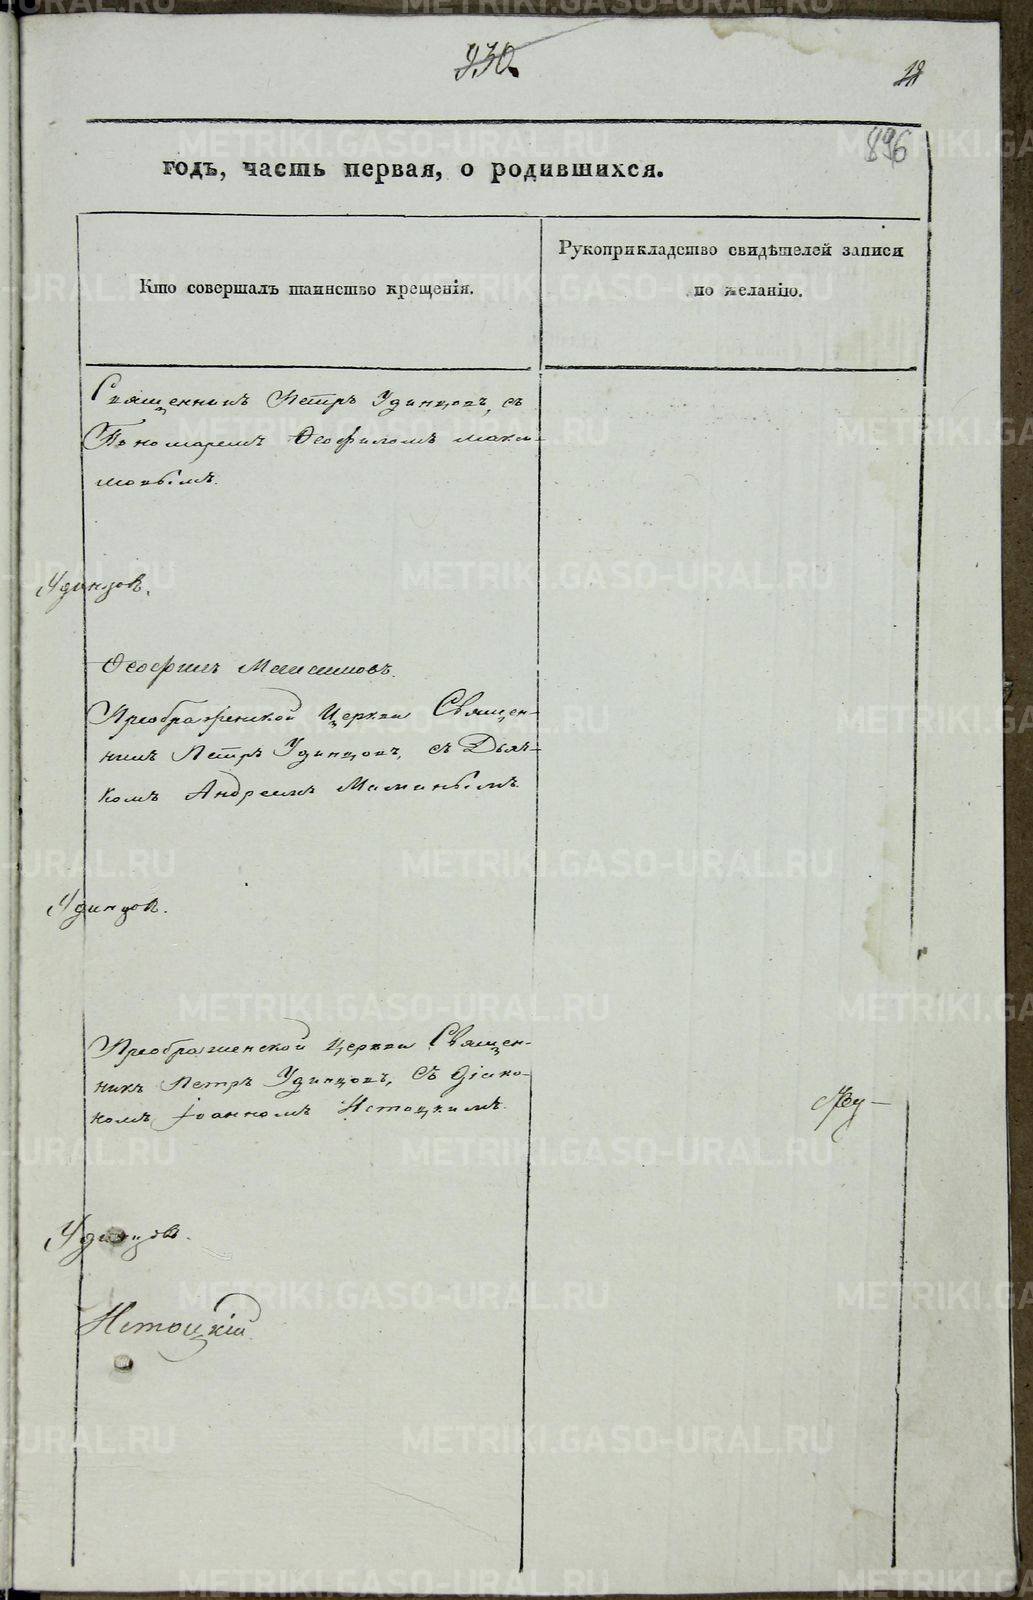 930.
12
896
годъ, часть первая, о родившихся.
Кто совершалъ таинство крещенія.
Рукоприкладство свидѣтелей записи
по желанію.
Священникъ Петръ Удинцовъ, съ
Пономаремъ Ѳеофиломъ Макси-
мовымъ.
Удинцов.
Ѳеофилъ Максимовъ.
Преображенской Церкви Священ-
никъ Петръ Удинцовъ, съ Дьяч-
комъ Андреемъ Маминымъ.
Удинцов.
Преображенской Церкви Священ-
никъ Петръ Удинцовъ, съ Діако-
номъ Іоанномъ Истоцкимъ.
Удинцов.
Истоцкій.
METRIKI.GASO-URAL.RU